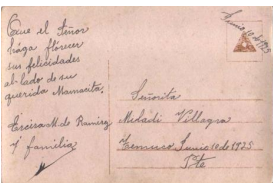 Que el Señor
haga florecer
sus felicidades
al lado de su
querida Mamacita.
Ercira M. de Ramirez
y familia
Señorita
Meladi Villagra
Temuco Junio 10 de 1925
Pte
Junio 10 de 1925